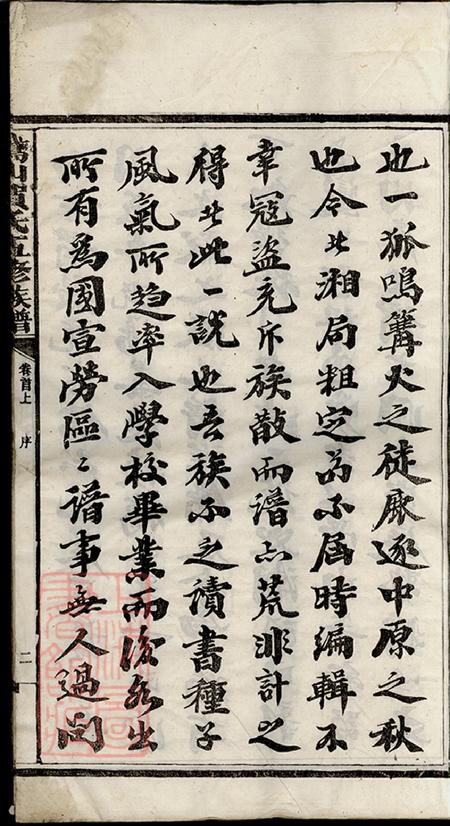 也一狐鳴篝火之徒廝逐中原之秋
也今此湘局粗定苟不屆時編輯不
幸冦盜充斥族散而譜亦荒非計之
得者此一說也吾族不乏讀書種子
風氣所趋率入學校畢業而後各出
所有為國宣勞區々譜事無人過問
山賀氏五修族譜
卷首上
序
二